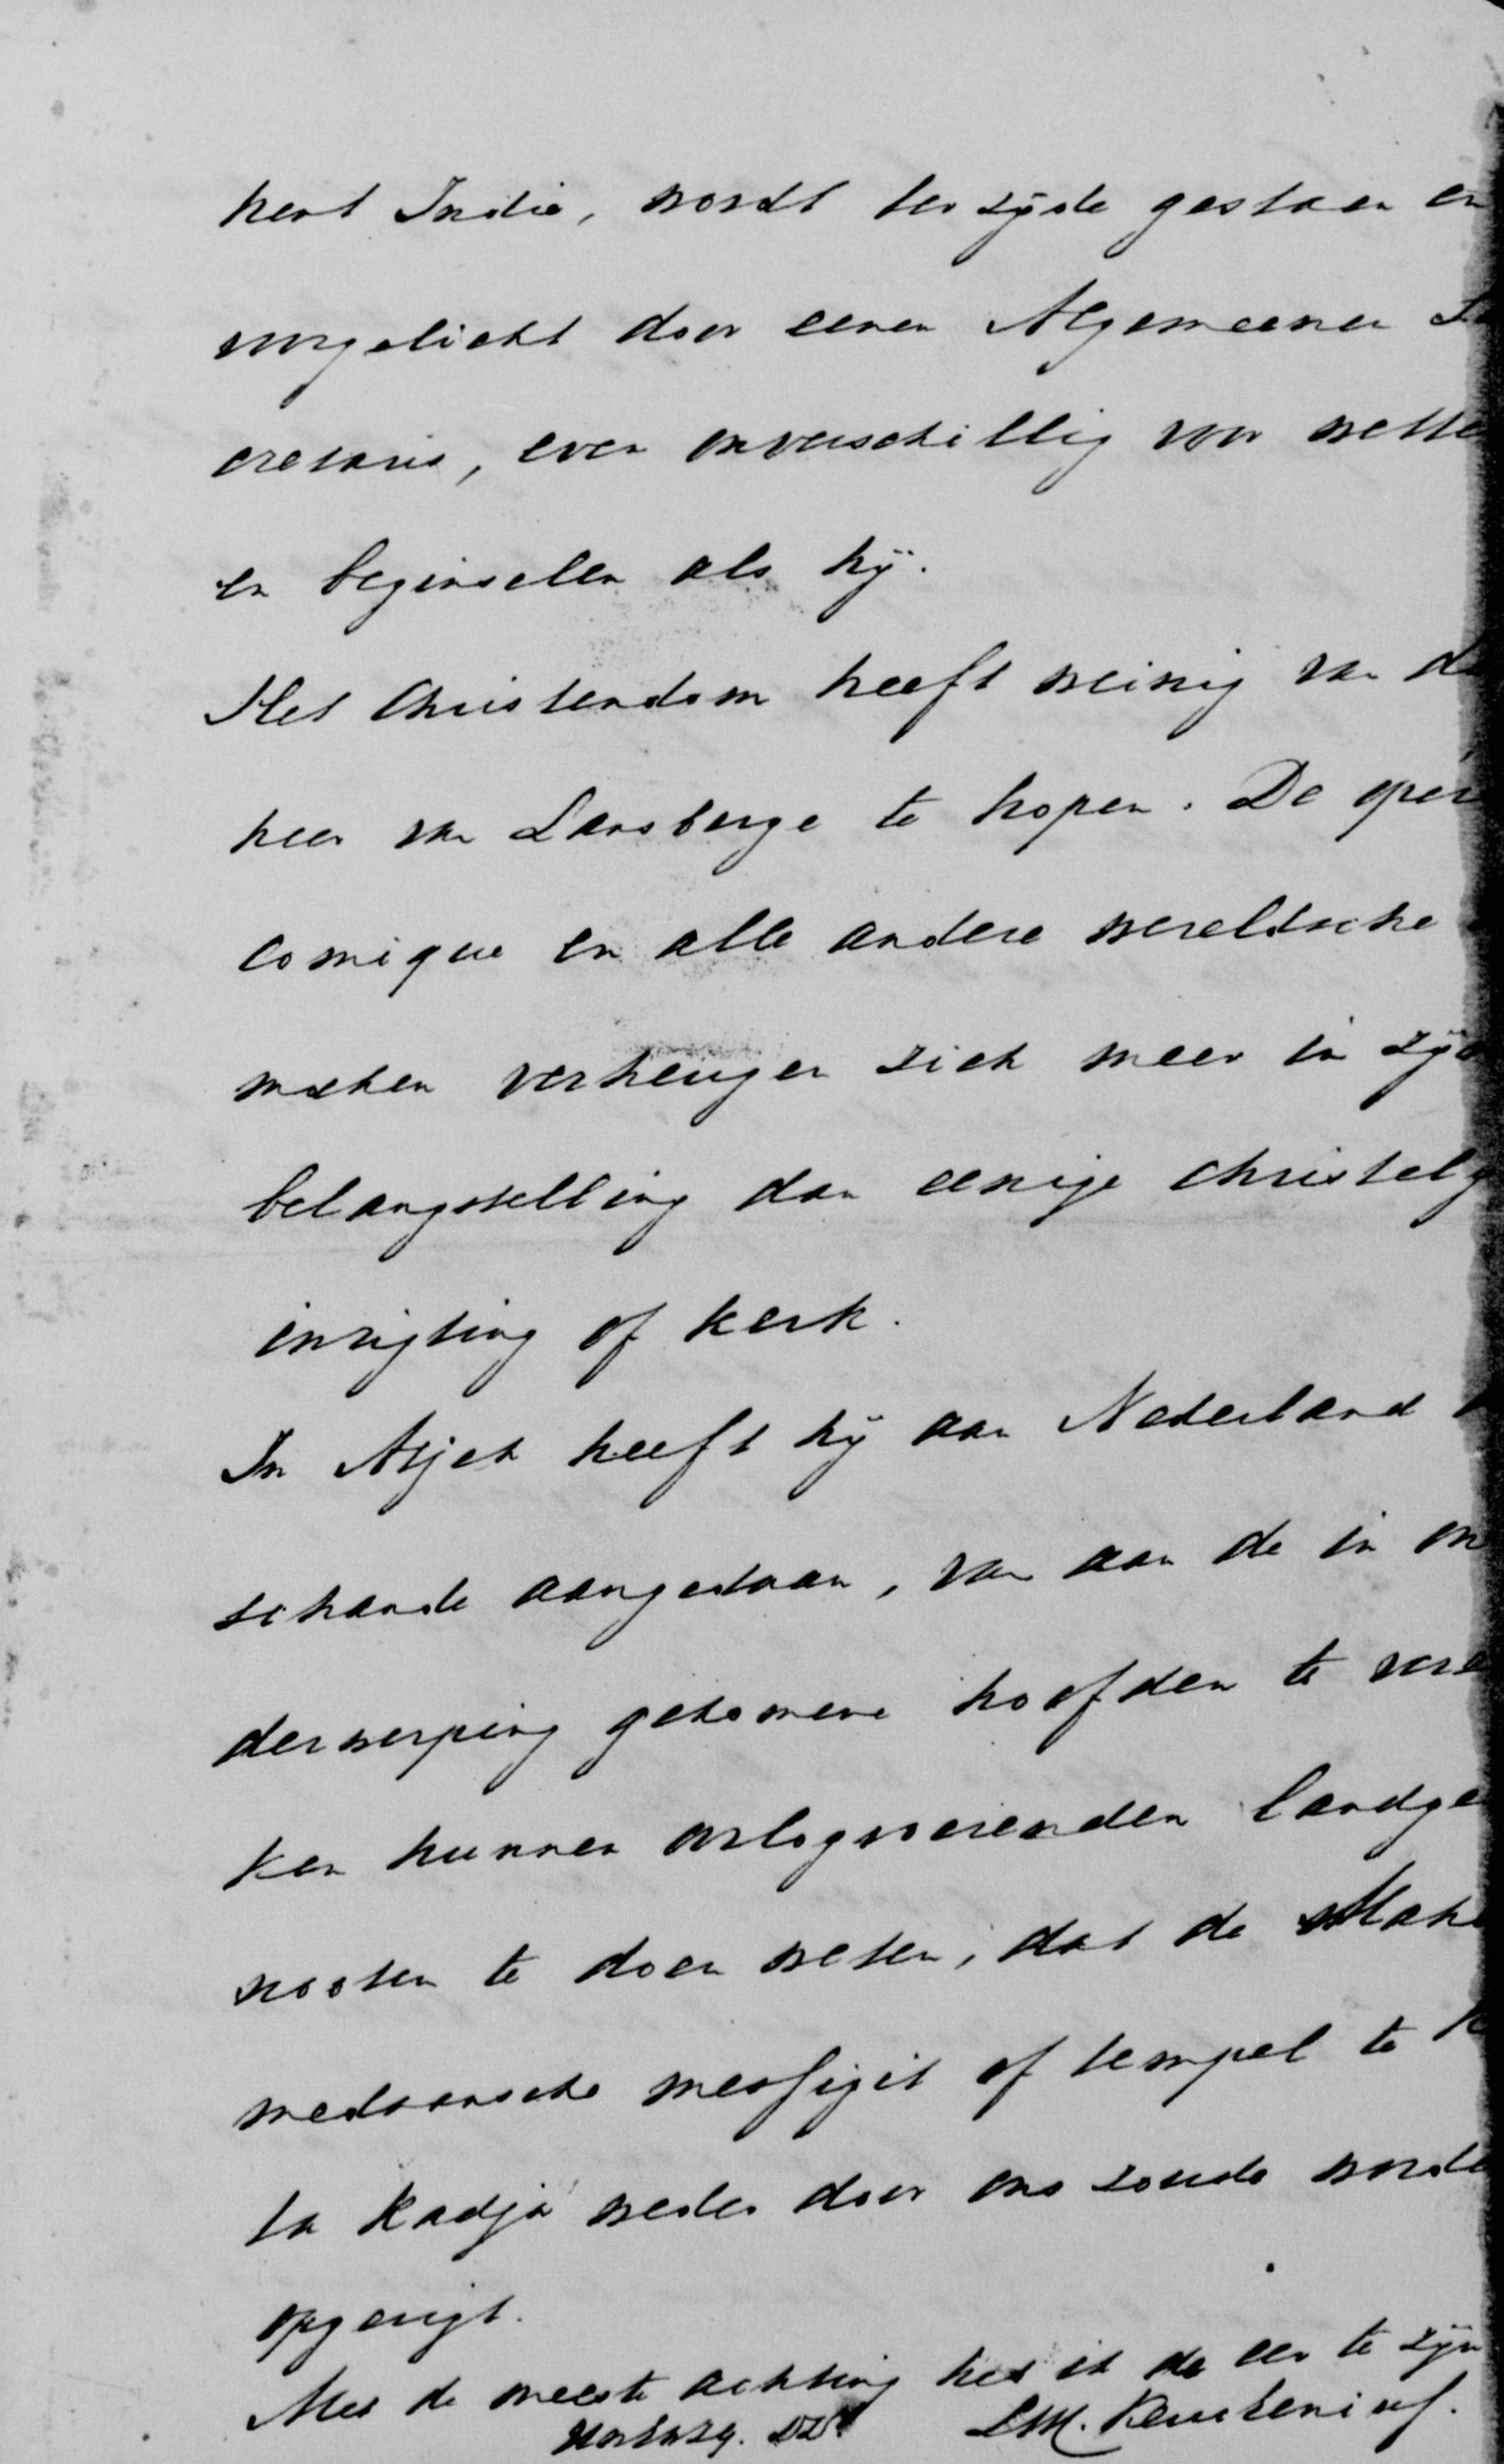 kent Indië, wordt ter zijde gestaan en
voorgelicht door eenen Algemeenen Se
cretaris, even onverschillig voor wette
en beginselen als hij.
Het Christendom heeft weinig van de
heer van Lansberge te hopen. De opéra
comique en alle andere wereldsche
maken verheugen zich meer in zijn
belangstelling dan eenige christelij
inrigting of kerk.
In Atjeh heeft hij aan Nederland
schande aangedaan, van aan de in on
derwerping gekomene hoofden te vere
ken hunnen oorlogvoerenden landge
nooten te doen weten, dat de Maho
medaansche mesigit of tempel te K
ta Radja weder door ons zoude worde
opgerigt.
Met de meeste achting heb ik de eer te zijn
UwEdZg. DD L.W.C. Keuchenius.